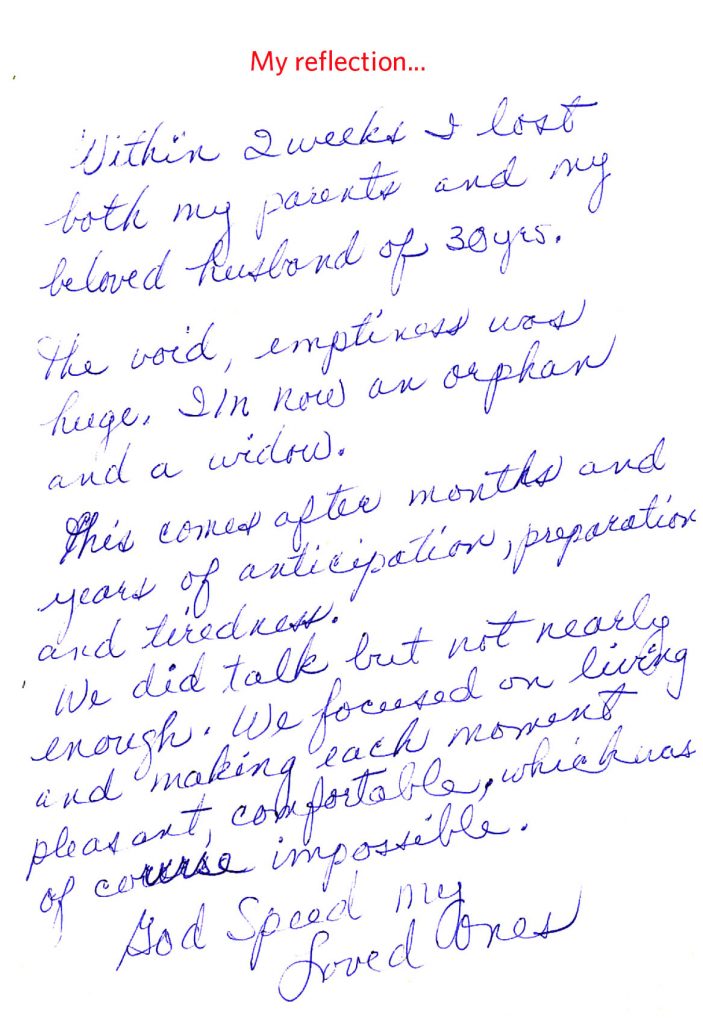 My reflection...
Within 2 weeks I lost
both my parents and my
beloved husband of 30yrs.
The void, emptiness was
huge. I'm now an orphan
and a widow.
This comes after months and
years of anticipation, preparation
and tiredness.
We did talk but not nearly
enough. We focused on living
and making each moment
pleasant, comfortable, which was
of course impossible.
God Speed my
Loved Ones